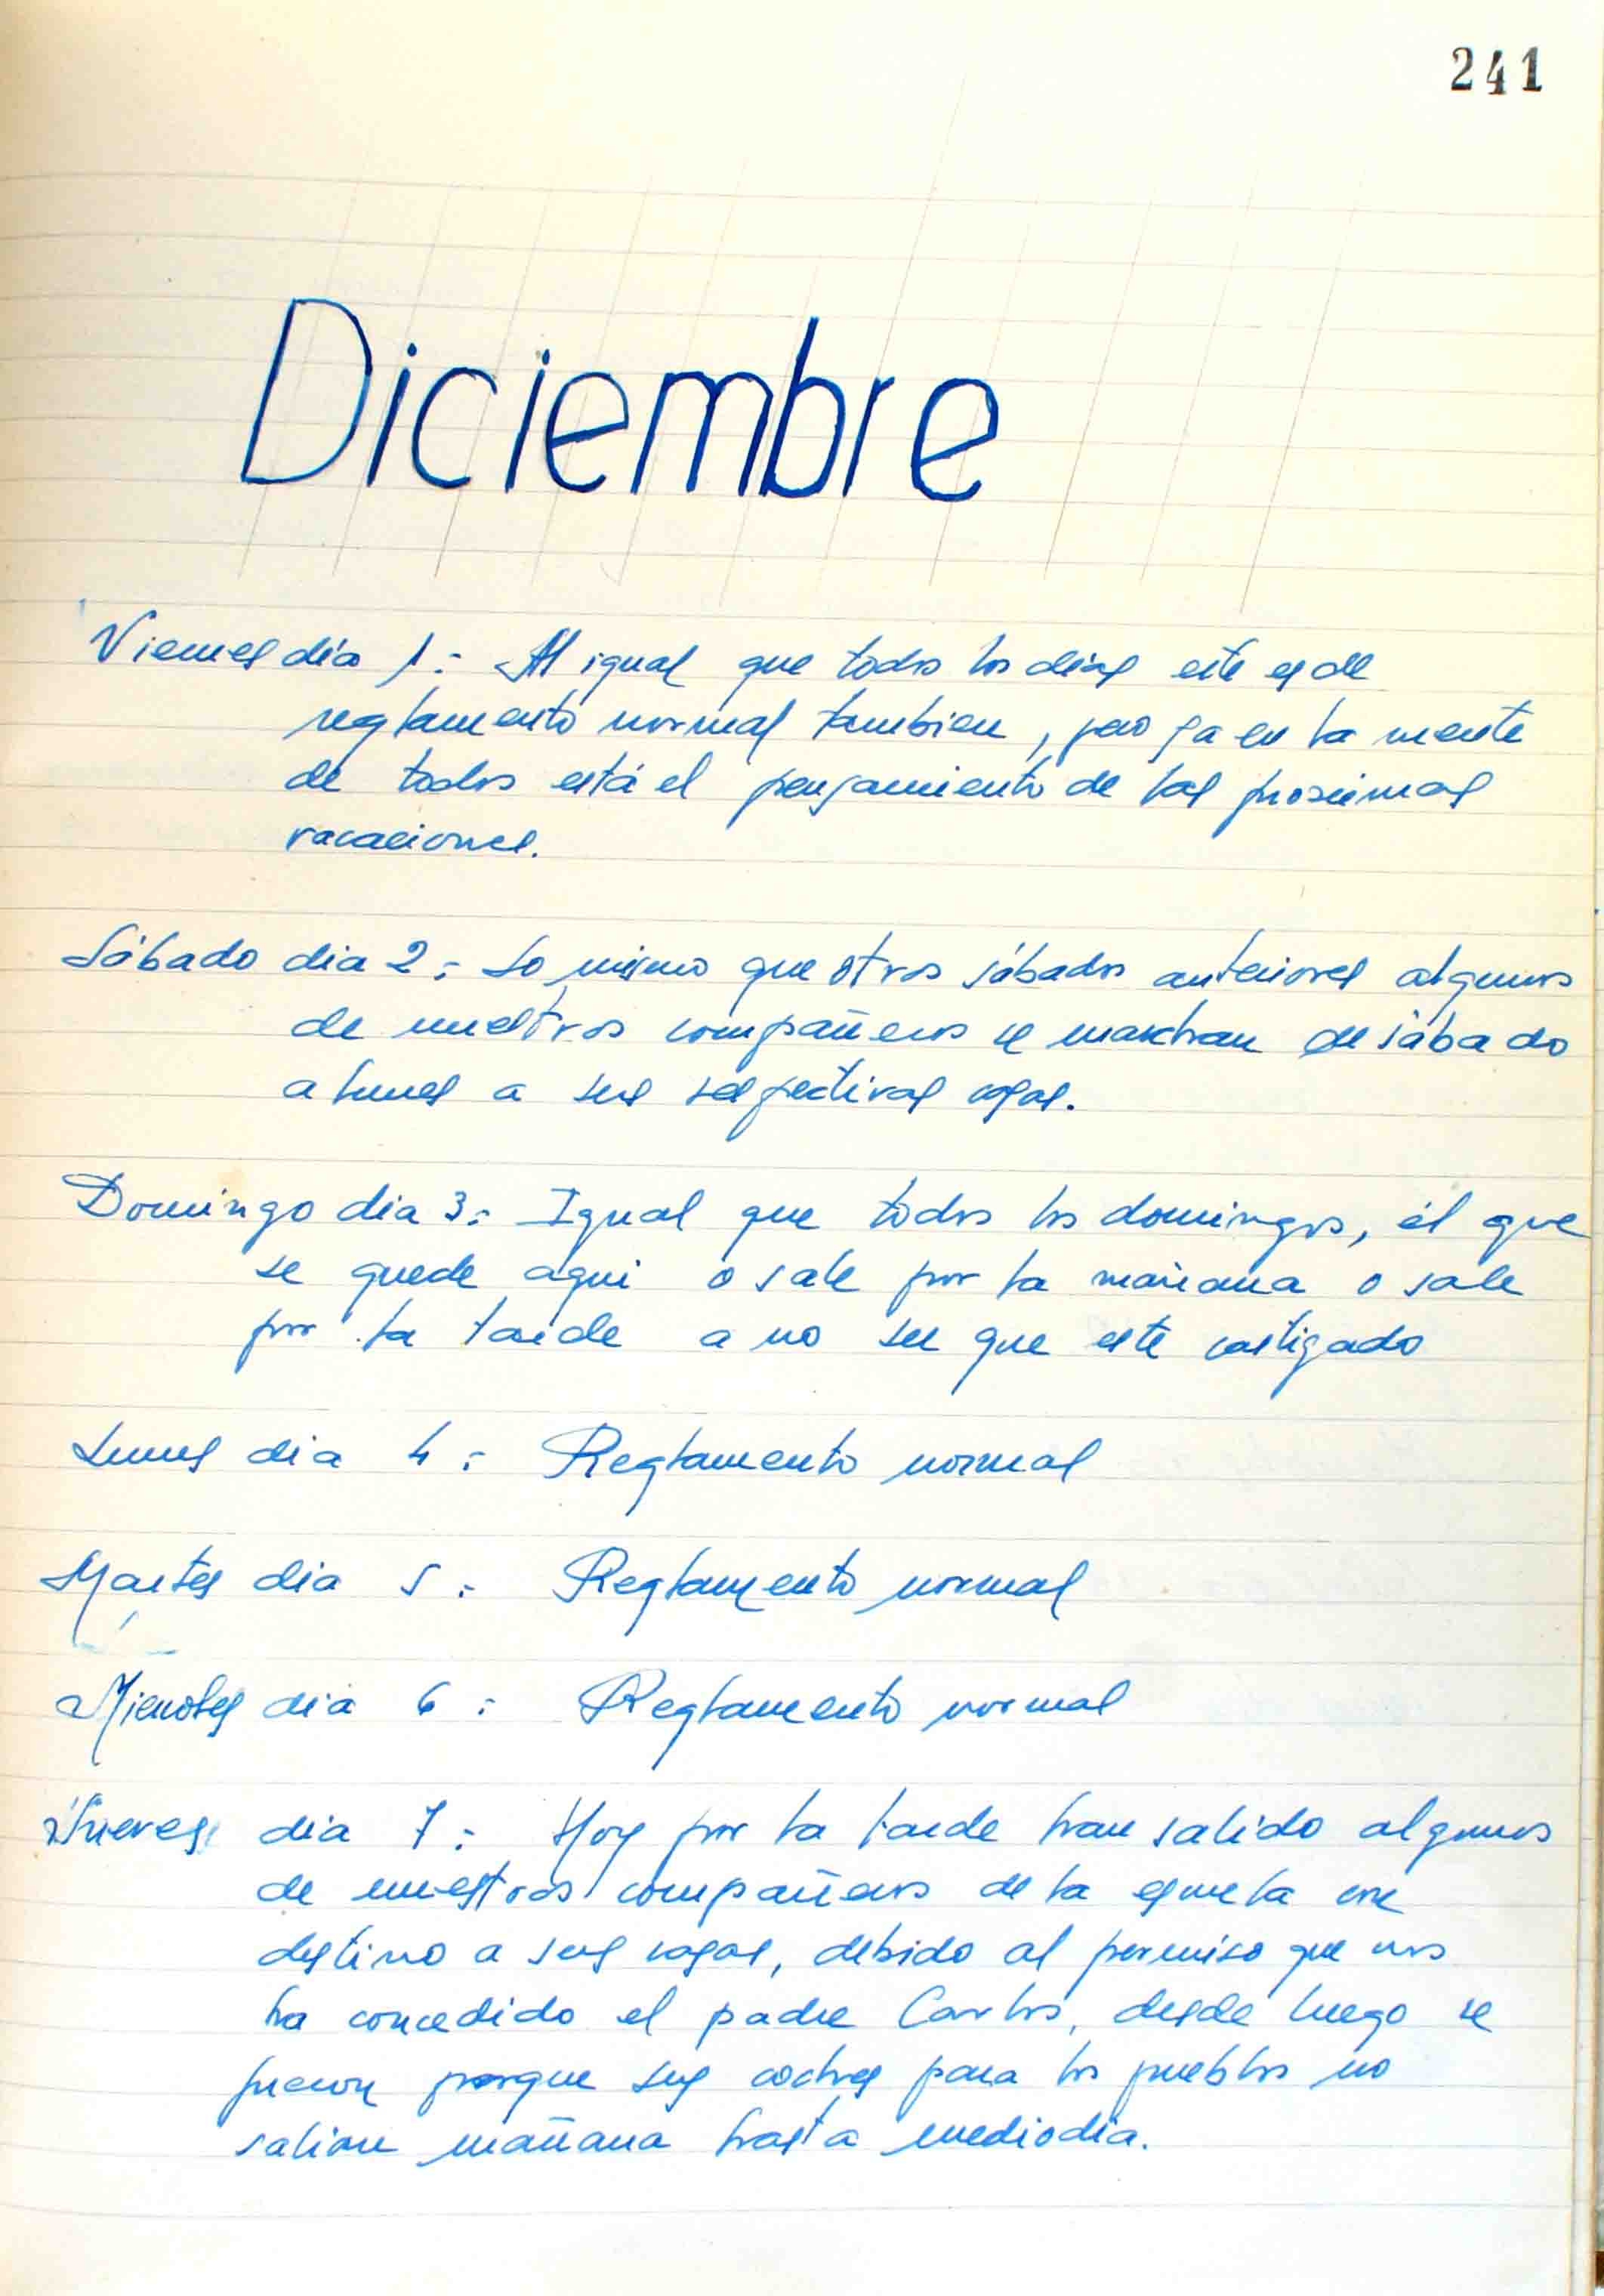 241
Diciembre
Viernes día 1:- Al igual que todos los días este es de
reglamento normal tambien, pero ya en la mente
de todos está el pensamiento de las proximas
vacaciones.
Sábado dia 2:- Lo mismo que otros sábados anteriores algunos
de nuestros compañeros se marchan de sábado
a lunes a sus respectivas casas.
Domingo dia 3:- Igual que todos los domingos, él que
se quede aqui o sale por la mañana o sale
por la tarde a no ser que este castigado
Lunes dia 4:- Reglamento normal
Martes dia 5:- Reglamento normal
Mierobes dia 6:- Reglamento normal
Jueves dia 7:- Hoy por la tarde han salido algunos
de nuestros compañeros de la escuela con
destino a sus casas, debido al permiso que nos
ha concedido el padre Carlos, desde luego se
fueron porque sus coches para los pueblos no
salian mañana hasta mediodia.